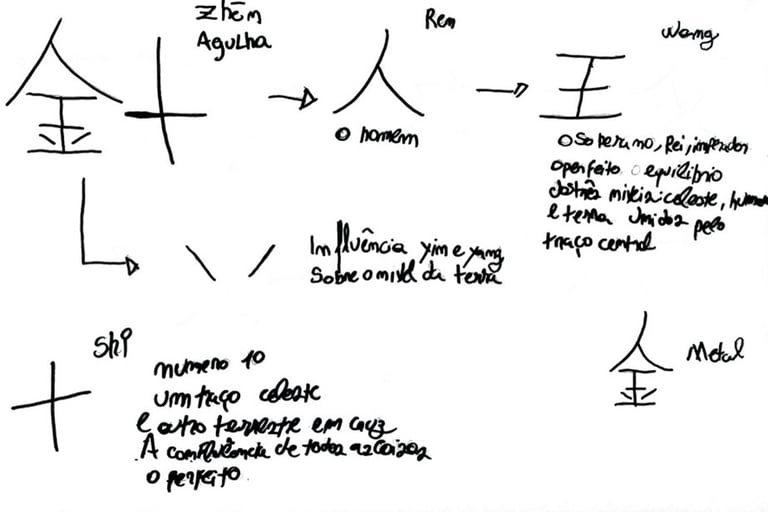 Zhēn
Agulha
針
Ren
人
O homem
Wang
王
O Soberano, Rei, imperador
o perfeito o equilíbrio
celeste, humano
e terra unidos pelo
traço central
Influência yin e yang
Sobre o nível da terra
Shi
十
numero 10
um traço celeste
e outro terrestre em cruz
A confluência de todas as coisas
o perfeito
金
Metal